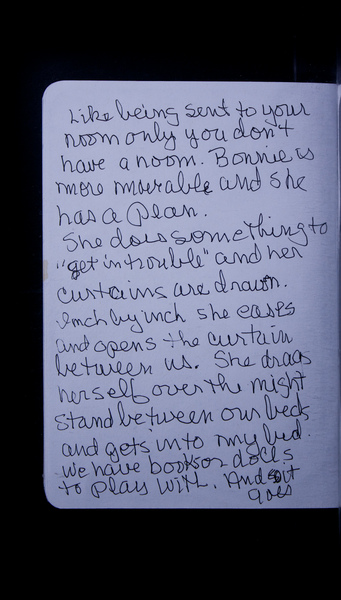 Like being sent to your
room only you don't
have a room. Bonnie is
more moveable and she
has a plan.
She does something to
"get in trouble" and her
curtains are drawn.
Inch by inch she eases
and opens the curtain
between us. She drags
herself over the night
stand between our beds
and gets into my bed.
We have books or dolls
to play with. And so it
goes